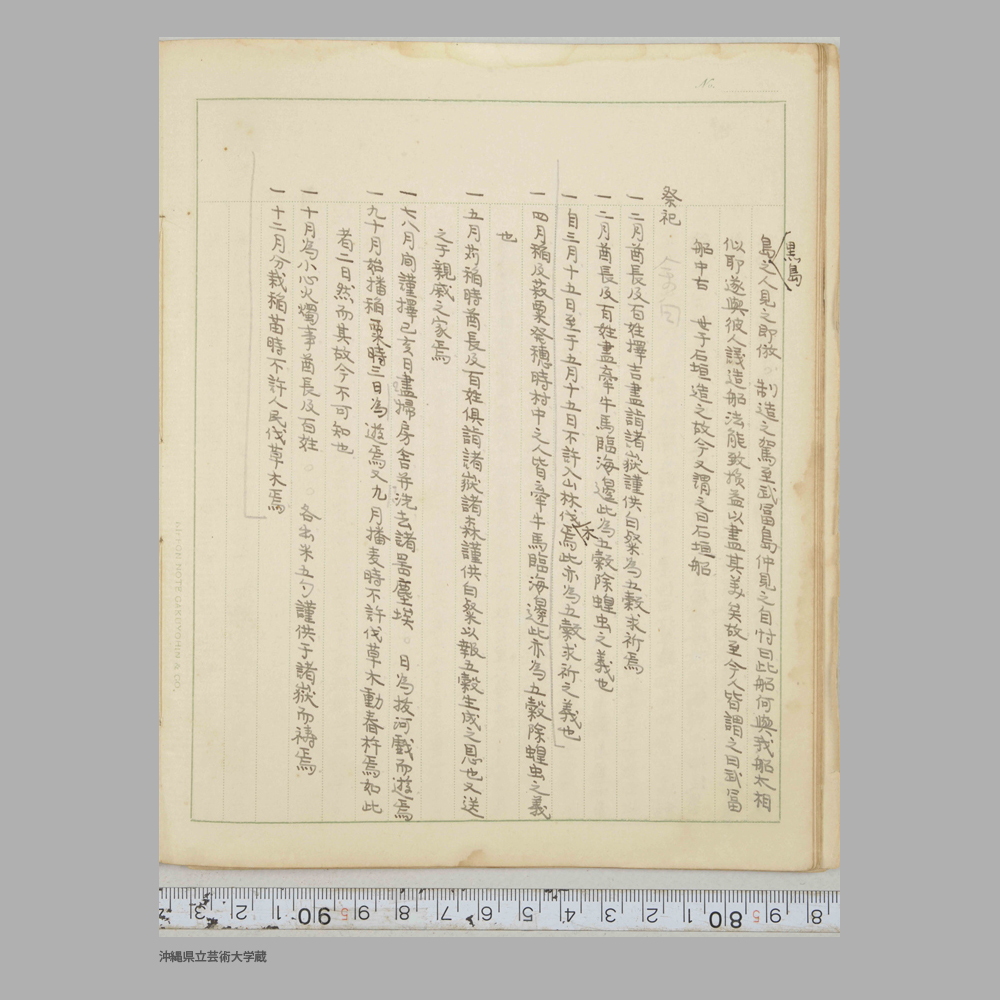 黒島
島之人見之即倣。制造之駕至武冨島仲見之自忖曰此船何與我船太相
似耶遂與彼人議造船法能致損益以盡其美矣故至今人皆謂之曰武冨
船中古　世于石垣造之故今又謂之曰石垣船
祭祀
一二月酋長及百姓擇吉盡詣諸嶽謹供白粲為五穀求祈焉
一二月酋長及百姓盡牽牛馬臨海邊此為五穀除蝗虫之義也
一自三月十五日至于五月十五日不許入山林伐木焉此亦為五穀求祈之義也
一四月稲及菽粟発穗時村中之人皆牽牛馬臨海邊此亦為五穀除蝗虫之義
也
一五月苅稲時酋長及百姓俱詣諸嶽諸森謹供白粲以報五穀生成之恩也又送
之于親戚之家焉
一七八月間謹擇己亥日盡掃房舎并洗去諸噐塵埃。日為抜河戲而遊焉
一九十月始播稲粟時三日為遊焉又九月播麦時不許伐草木動舂杵焉如此
者二日然而其故今不可知也
一十月為小心火燭事酋長及百姓。。各出米五勺謹供于諸嶽而祷焉
一十二月分栽稲苗時不許人民伐草木焉
No.
NIPPON NOTE GAKUYOHIN & CO.
3 2 1 90 9 8 7 6 5 4 3 2 1 80 9 8
沖縄県立芸術大学蔵